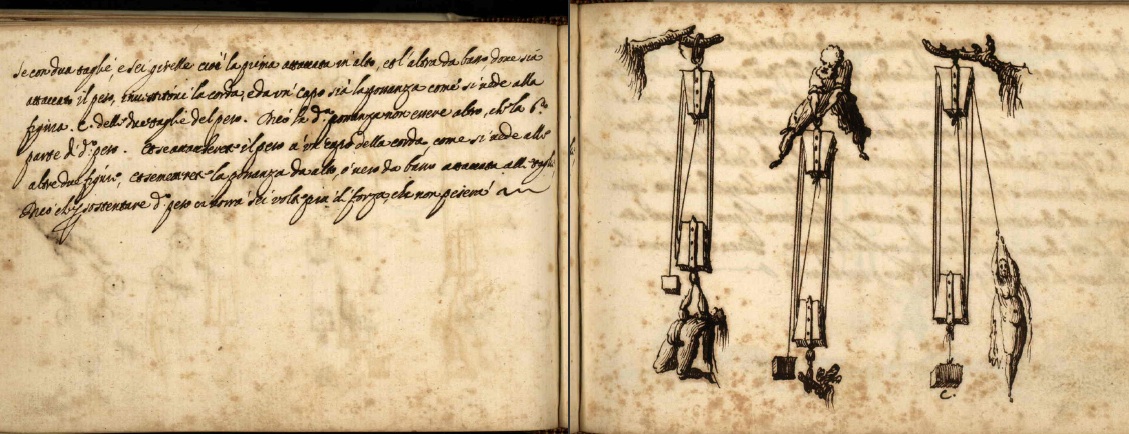 Se con dua taglie e sei girelle cioè la prima attaccata in alto, et l'altra da basso dove sia
attaccato il peso, la corda, e da un capo sia la possanza come si vede alla
figura .C. delle due taglie del peso. Dico la d.ª possanza non essere altro, ch' la 6.ª
parte d' d.º peso. il peso à un capo della corda, come si vede alle
altre due figure, la possanza da alto, ò vero da basso attaccata alle taglie
Dico ch' sostentare d.º peso ci vorrà sei volte più d' forza, che non peserà
C.